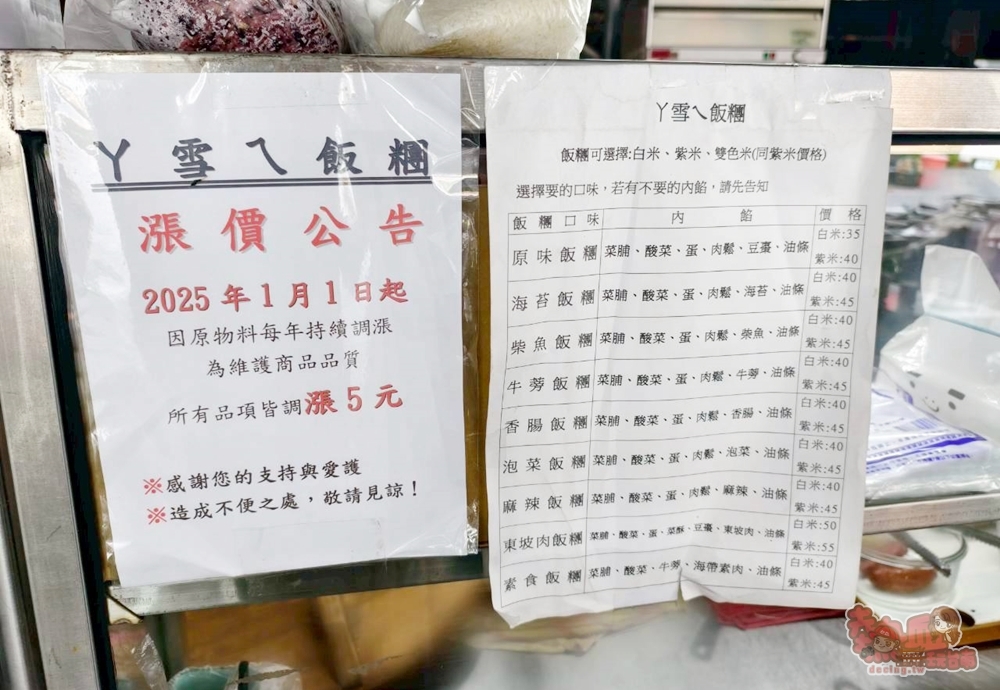 丫雪ㄟ飯糰
漲價公告
2025年1月1日起
因原物料每年持續調漲
為維護商品品質
所有品項皆調漲5元
※感謝您的支持與愛護
※造成不便之處，敬請見諒！
丫雪ㄟ飯糰
飯糰可選擇:白米、紫米、雙色米(同紫米價格)
選擇要的口味，若有不要的內餡，請先告知
飯糰口味 內餡 價格
原味飯糰 菜脯、酸菜、蛋、肉鬆、豆棗、油條 白米:35
紫米:40
海苔飯糰 菜脯、酸菜、蛋、肉鬆、海苔、油條 白米:40
紫米:45
柴魚飯糰 菜脯、酸菜、蛋、肉鬆、柴魚、油條 白米:40
紫米:45
牛蒡飯糰 菜脯、酸菜、蛋、肉鬆、牛蒡、油條 白米:40
紫米:45
香腸飯糰 菜脯、酸菜、蛋、肉鬆、香腸、油條 白米:40
紫米:45
泡菜飯糰 菜脯、酸菜、蛋、肉鬆、泡菜、油條 白米:40
紫米:45
麻辣飯糰 菜脯、酸菜、蛋、肉鬆、麻辣、油條 白米:40
紫米:45
東坡肉飯糰 菜脯、酸菜、蛋、菜酥、豆棗、東坡肉、油條 白米:50
紫米:55
素食飯糰 菜脯、酸菜、牛蒡、海帶素肉、油條 白米:40
紫米:45
dacing.tw